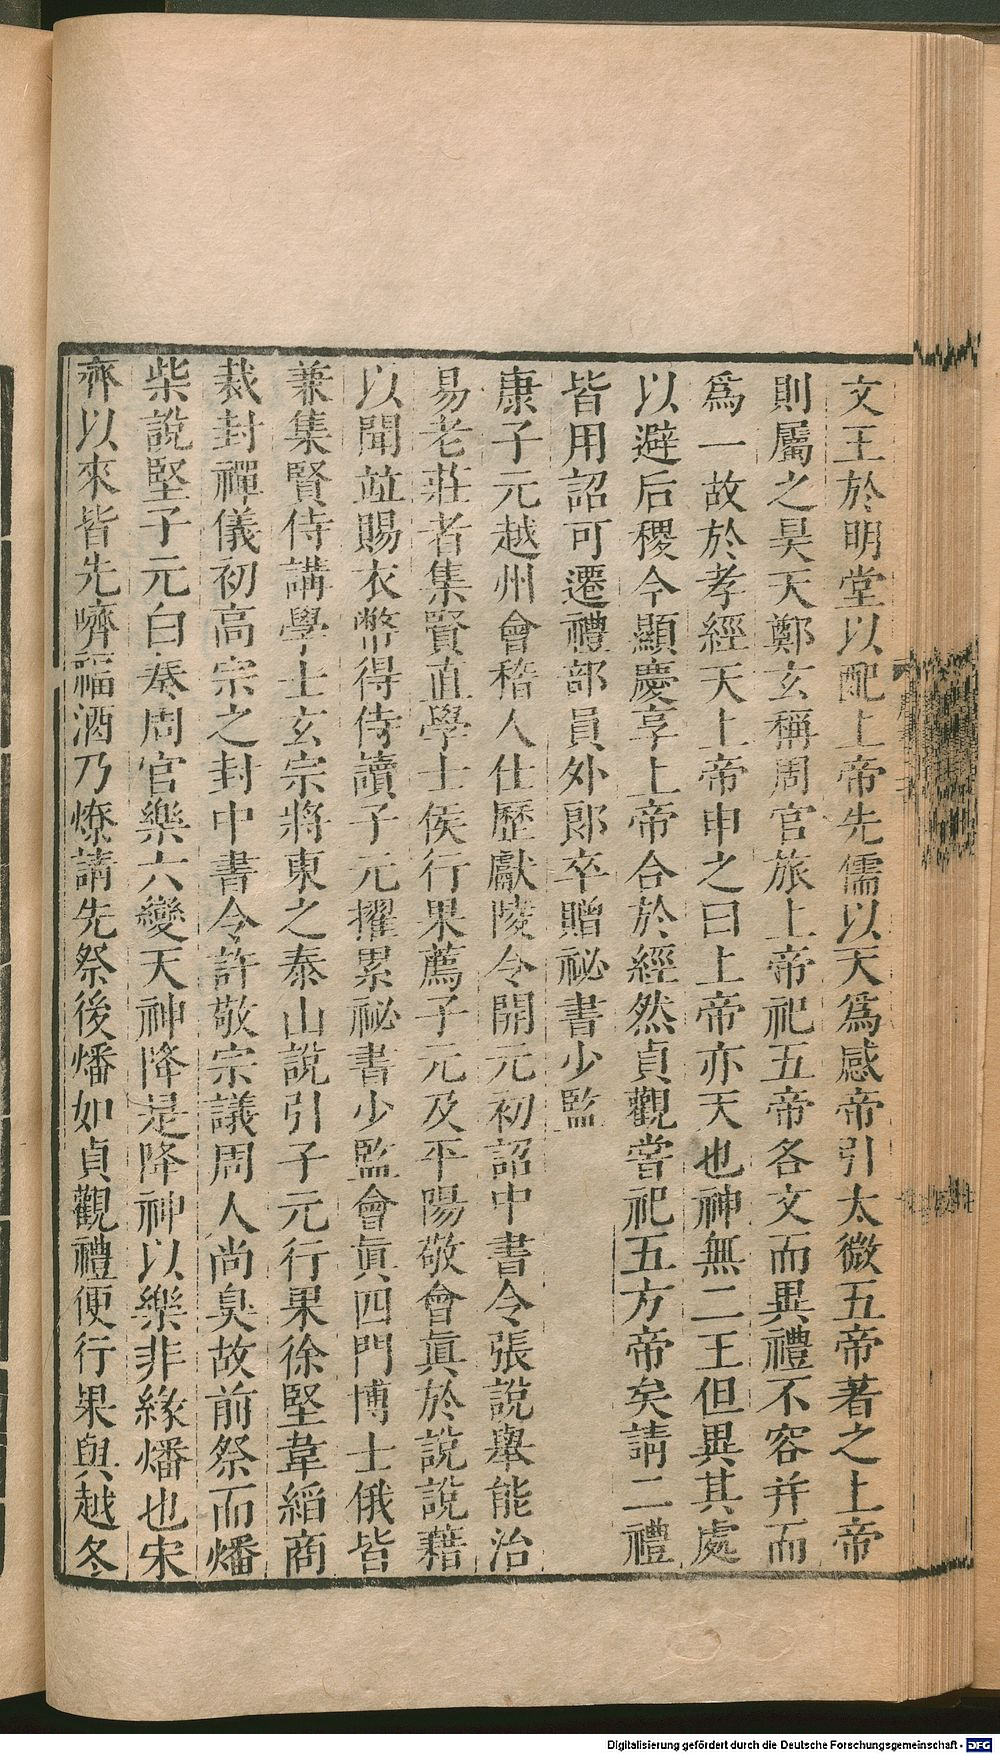 文王於明堂以配上帝先儒以天爲感帝引太微五帝著之上帝
則屬之昊天鄭玄稱周官旅上帝祀五帝各文而異禮不容并而
爲一故於孝經天上帝申之曰上帝亦天也神無二王但異其處
以避后稷今顯慶享上帝合於經然貞觀嘗祀五方帝矣請二禮
皆用詔可遷禮部員外郎卒贈祕書少監
康子元越州會稽人仕歷獻陵令開元初詔中書令張說舉能治
易老莊者集賢直學士侯行果薦子元及平陽敬會眞於說說藉
以聞並賜衣幣得侍讀子元擢累祕書少監會眞四門博士俄皆
兼集賢侍講學士玄宗將東之泰山說引子元行果徐堅韋縚商
裁封禪儀初高宗之封中書令許敬宗議周人尚臭故前祭而燔
柴說堅子元白奏周官樂六變天神降是降神以樂非緣燔也宋
齊以來皆先嚌福酒乃燎請先祭後燔如貞觀禮便行果與越冬
Digitalisierung gefördert durch die Deutsche Forschungsgemeinschaft - DFG